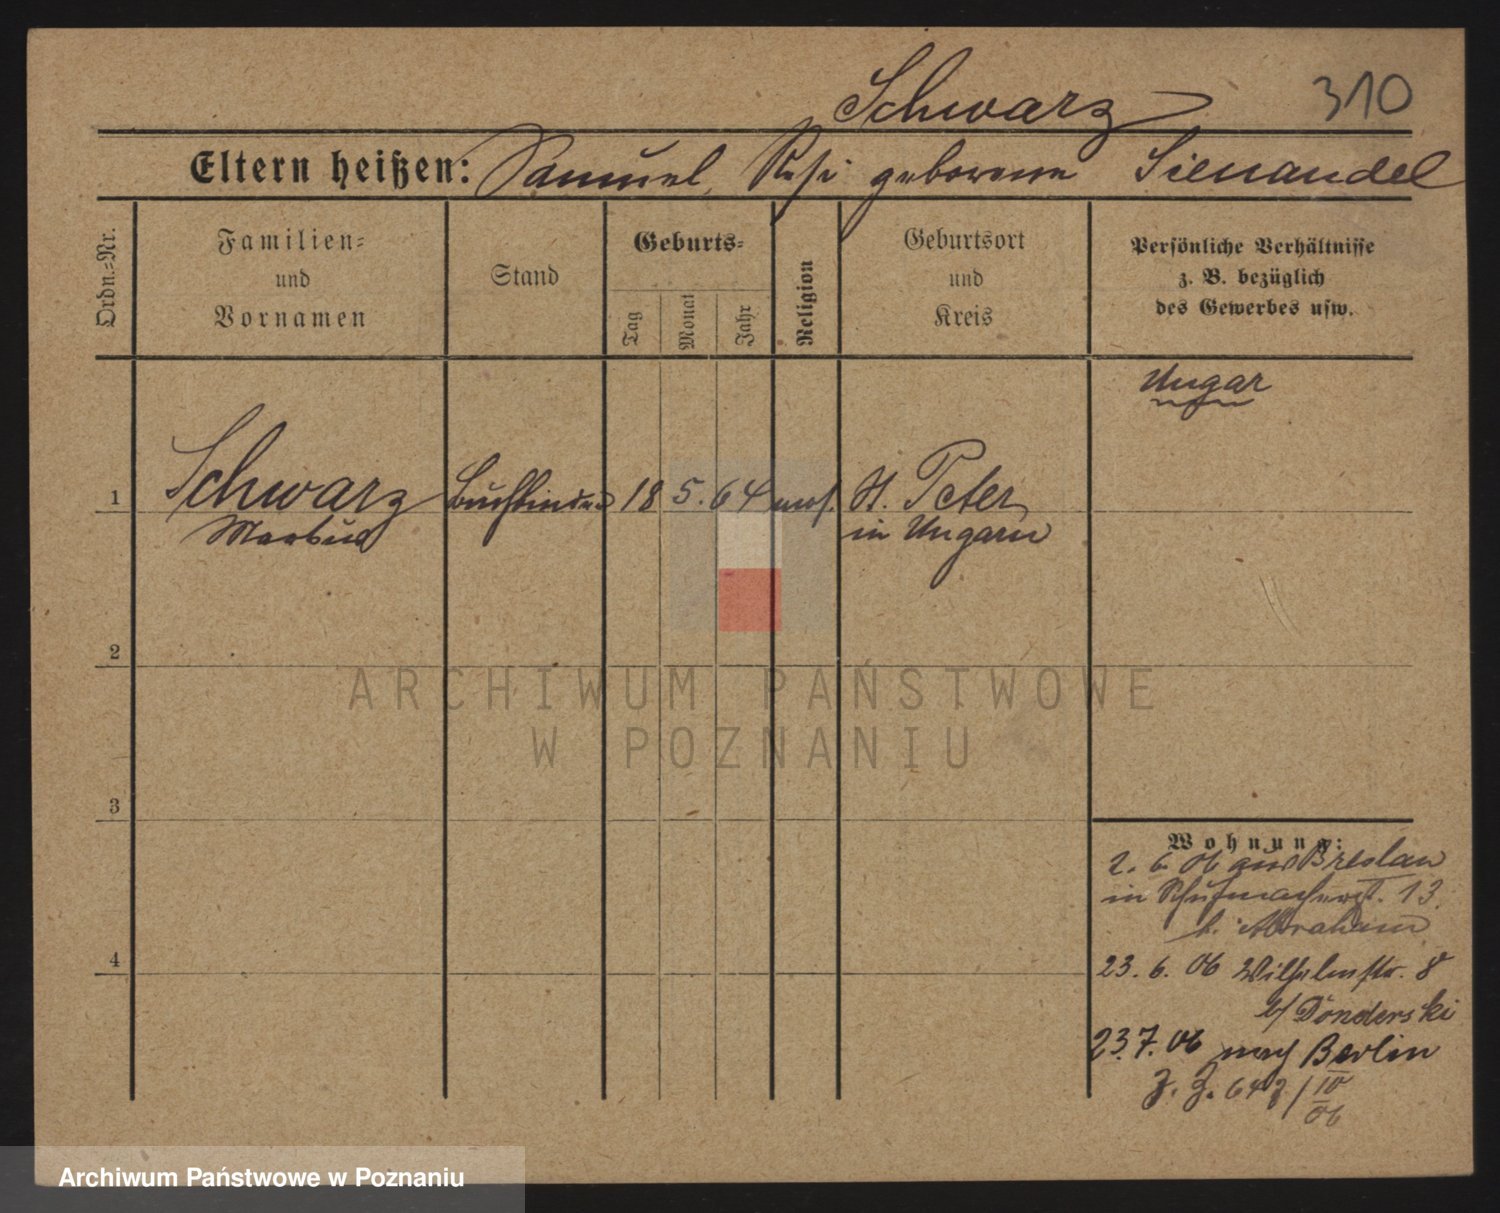 Schwarz
310
Eltern heißen: Samuel, Resi geborene Sienandel
Ordn.-Nr.
Familien-
und
Vornamen
Stand
Geburts-
Tag
Monat
Jahr
Religion
Geburtsort
und
Kreis
Persönliche Verhältnisse
z. B. bezüglich
des Gewerbes usw.
Ungar
1
Schwarz
Markus
Buchbinder
18
5.
64
mos.
St. Peter
in Ungarn
2
ARCHIWUM PAŃSTWOWE
W POZNANIU
3
Wohnung:
2. 6. 06 aus Breslau
in Schuhmacherst. 13.
b. Abraham
4
23. 6. 06 Wilhelmstr. 8
b/ Donderski
23.7. 06 nach Berlin
IV
06
Archiwum Państwowe w Poznaniu